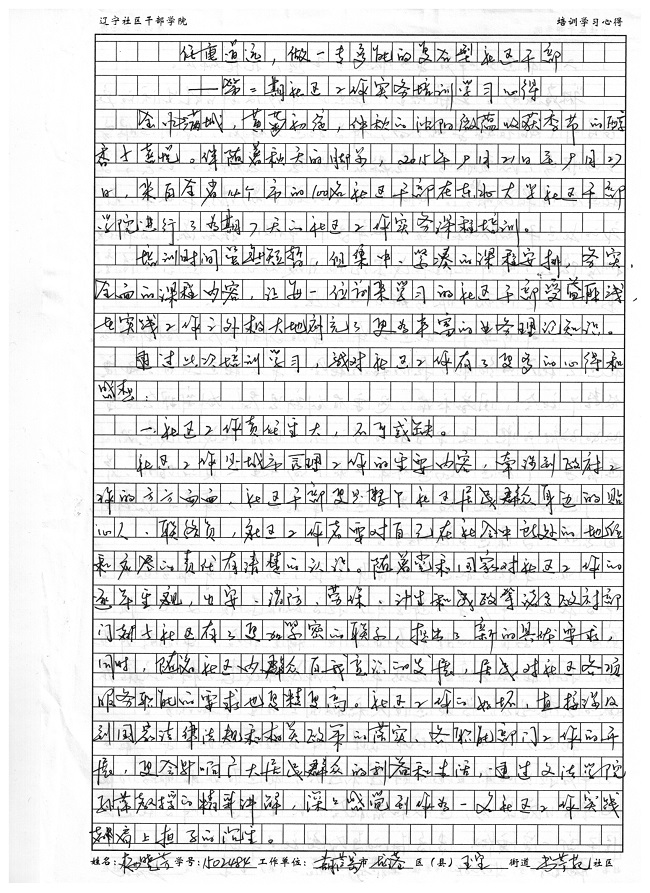 辽宁社区干部学院 培训学习心得
任重道远，做一专多能的复合型社区干部
——第二期社区工作实务培训学习心得
金 满城，黄 初 ，仲秋的沈阳 收获季节的
香与喜悦。伴随着秋天的脚步，2015年9月21日至9月27
日，来自全省14个市的100名社区干部在东北大学社区干部
学院进行了为期7天的社区工作实务课程培训。
培训时间虽然短暂，但集中、紧凑的课程安排，务实、
全面的课程内容，让每一位前来学习的社区干部受益匪浅，
在实践工作之外极大地补充了更为丰富的业务理论知识。
通过此次培训学习，我对社区工作有了更多的心得和
感想：
一、社区工作责任重大，不可或缺。
社区工作是城市管理工作的重要内容，牵涉到政府工
作的方方面面，社区干部更是整个社区居民群众身边的贴
心人、联络员，社区工作者要对自己在社会中所处的地位
和应尽的责任有清楚的认识。随着党和国家对社区工作的
逐年重视，公安、消防、劳保、计生和民政等诸多政府部
门都与社区有了更加紧密的联系，提出了新的具体要求，
同时，随着社区内群众自我意识的发展，居民对社区各项
服务职能的要求也更精更高。社区工作的好坏，直接涉及
到国家法律法规和相关政策的落实、各职能部门工作的开
展，更会影响广大居民群众的利益和生活，通过文法学院
孙萍教授的精彩讲解，深深感觉到作为一名社区工作实践
者肩上担子的沉重。
姓名： 学号：1502484 工作单位： 市 区（县） 街道 社区